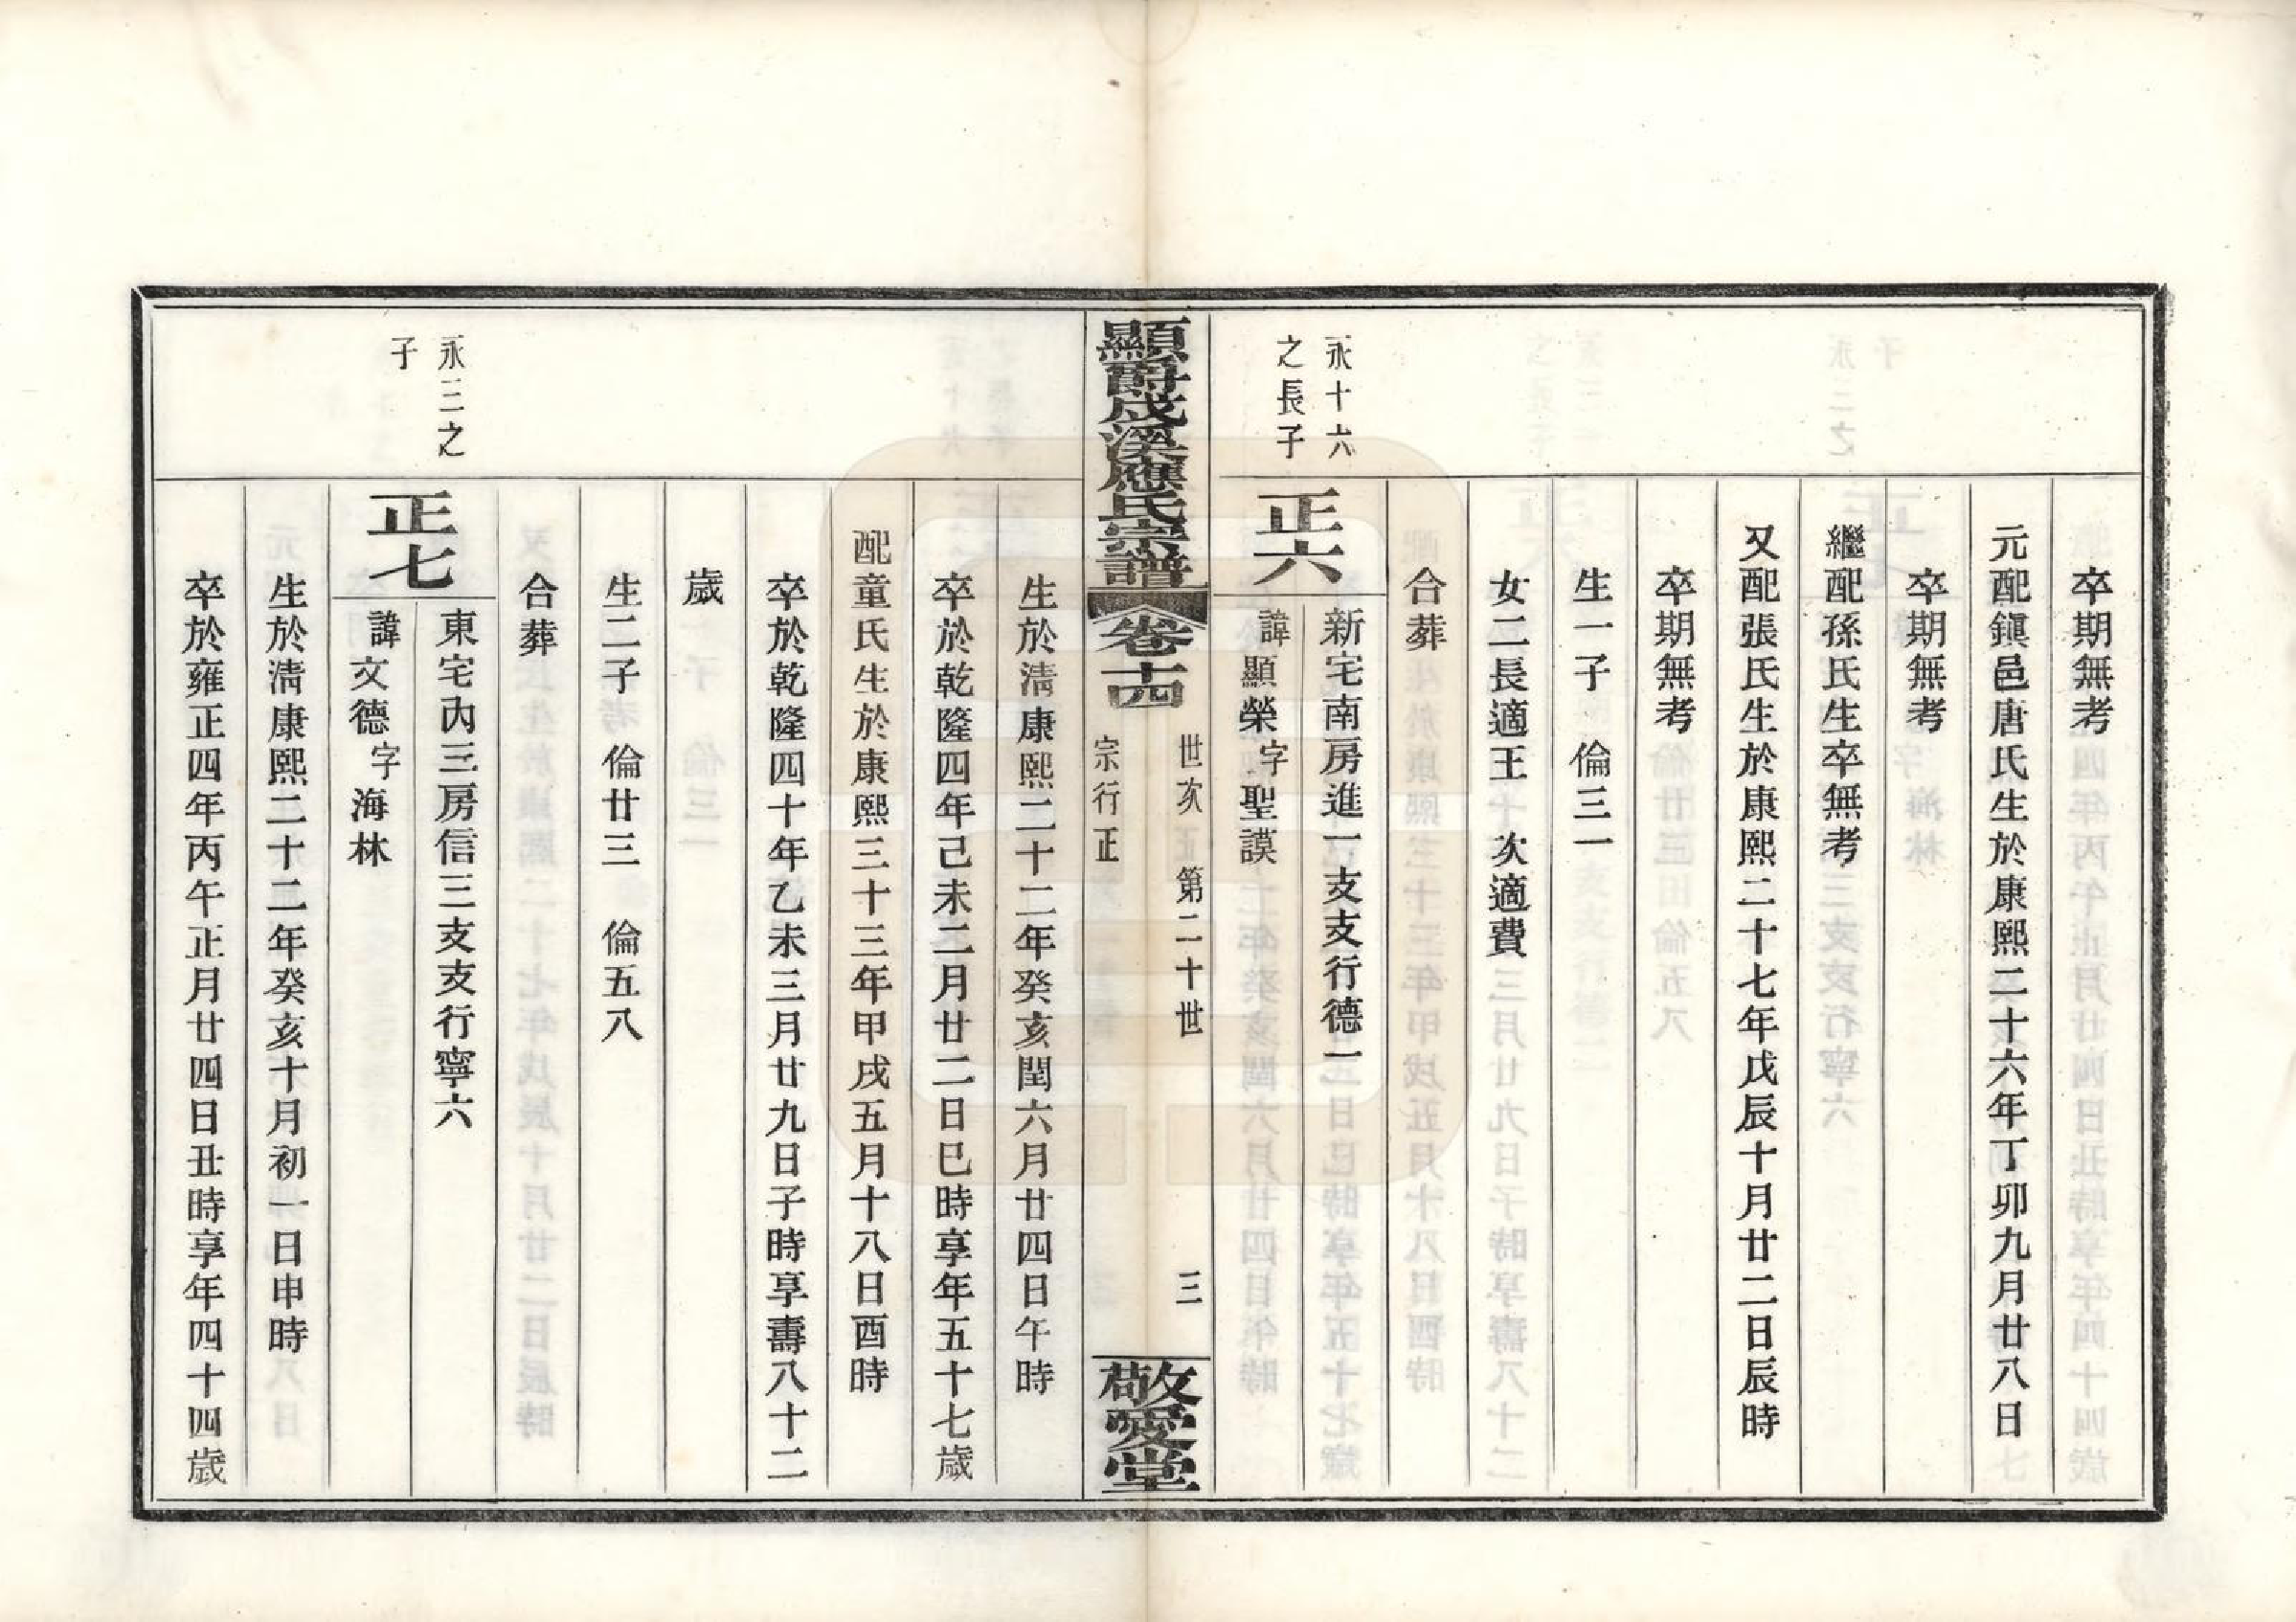 卒期無考
元配鎭邑唐氏生於康熙二十六年丁卯九月廿八日
卒期無考
繼配孫氏生卒無考
又配張氏生於康熙二十七年戊辰十月廿二日辰時
卒期無考
生一子　倫三一
女二長適王　次適費
合葬
永十六
之長子
正六
新宅南房進一支支行德一
諱顯榮字聖謨
顯爵成溪應氏宗譜
卷十四
世次　第二十世
宗行正
三
敬愛堂
生於淸康熙二十二年癸亥閏六月廿四日午時
卒於乾隆四年己未二月廿二日巳時享年五十七歲
配童氏生於康熙三十三年甲戌五月十八日酉時
卒於乾隆四十年乙未三月廿九日子時享壽八十二
歲
生二子　倫廿三　倫五八
合葬
永三之
子
正七
東宅內三房信三支支行寧六
諱文德字海林
生於淸康熙二十二年癸亥十月初一日申時
卒於雍正四年丙午正月廿四日丑時享年四十四歲